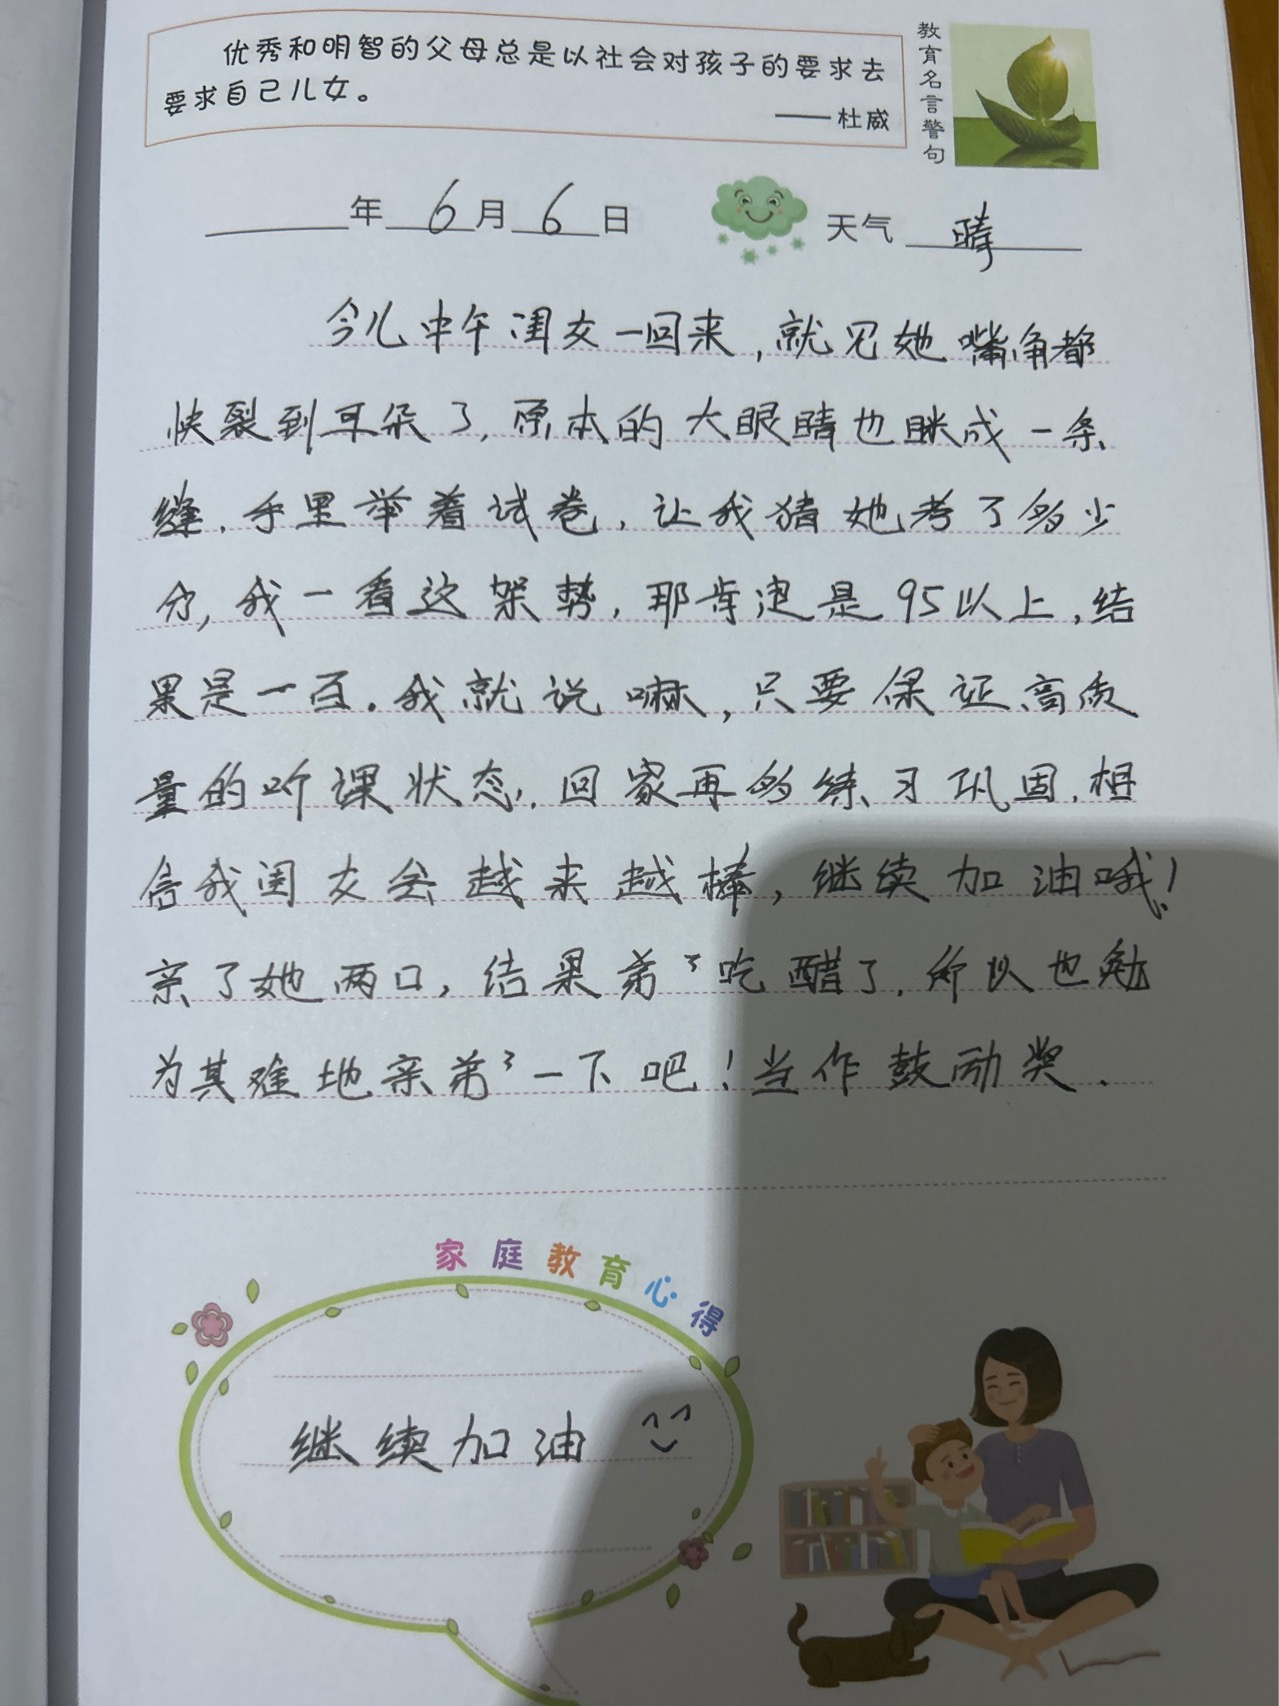 优秀和明智的父母总是以社会对孩子的要求去
要求自己儿女。
——杜威
教育名言警句
年 6 月 6 日 天气 晴
今儿中午闺女一回来,就见她嘴角都
快裂到耳朵了,原本的大眼睛也眯成一条
缝,手里举着试卷,让我猜她考了多少
分,我一看这架势,那肯定是95以上,结
果是一百。我就说嘛,只要保证高质
量的听课状态,回家再多练习巩固,相
信我闺女会越来越棒,继续加油哦!
亲了她两口,结果弟弟吃醋了,所以也勉
为其难地亲弟弟一下吧!当作鼓励奖.
家庭教育心得
继续加油